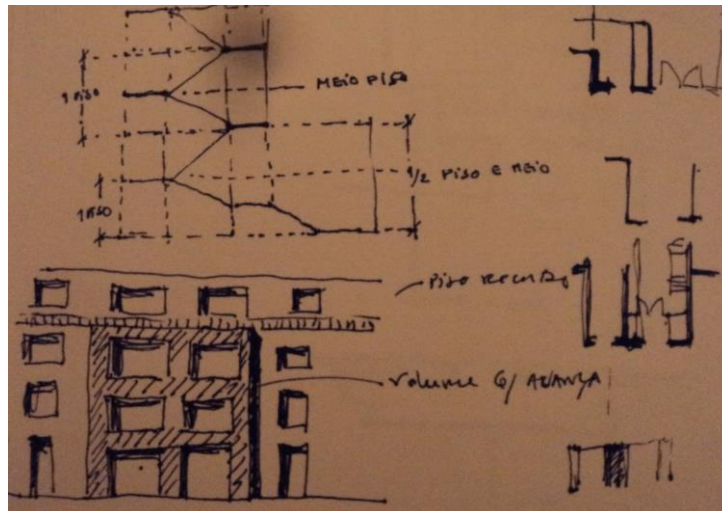 MEIO PISO
1 PISO
1/2 PISO E MEIO
1 PISO
PISO RECUADO
VOLUME Q/ AVANÇA